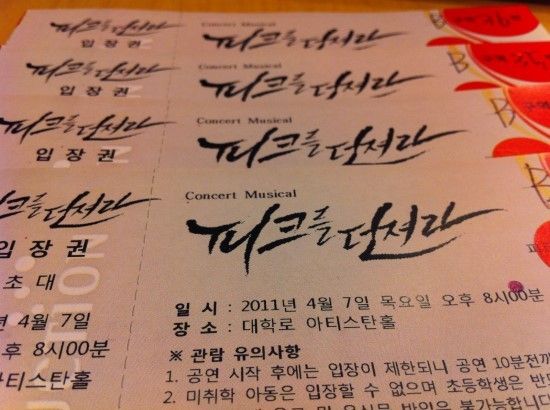 Concert Musical
피크를 던져라
입장권
피크를 던져라
Concert Musical
피크를 던져라
입장권
피크를 던져라
Concert Musical
피크를 던져라
입장권
피크를 던져라
Concert Musical
피크를 던져라
입장권
초대
4월 7일
후 8시00분
아티스탄홀
피크를 던져라
일 시 : 2011년 4월 7일 목요일 오후 8시00분
장 소 : 대학로 아티스탄홀
※ 관람 유의사항
1. 공연 시작 후에는 입장이 제한되니 공연 10분전까
2. 미취학 아동은 입장할 수 없으며 초등학생은 반드